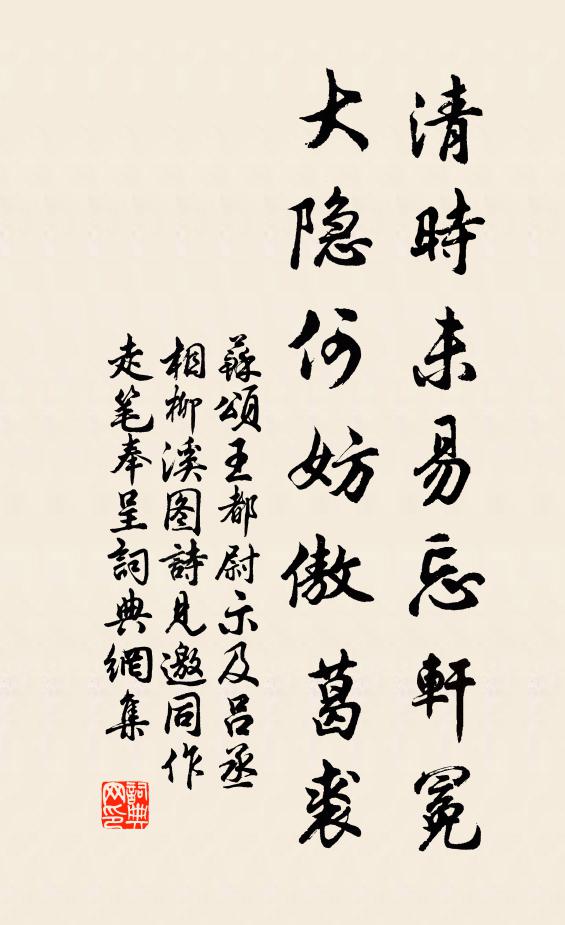 清時未易忘軒冕
大隐何妨傲葛裘
蘇頌王都尉示及呂丞
相柳溪图詩見邀同作
走笔奉呈詞典網集
詞典网印